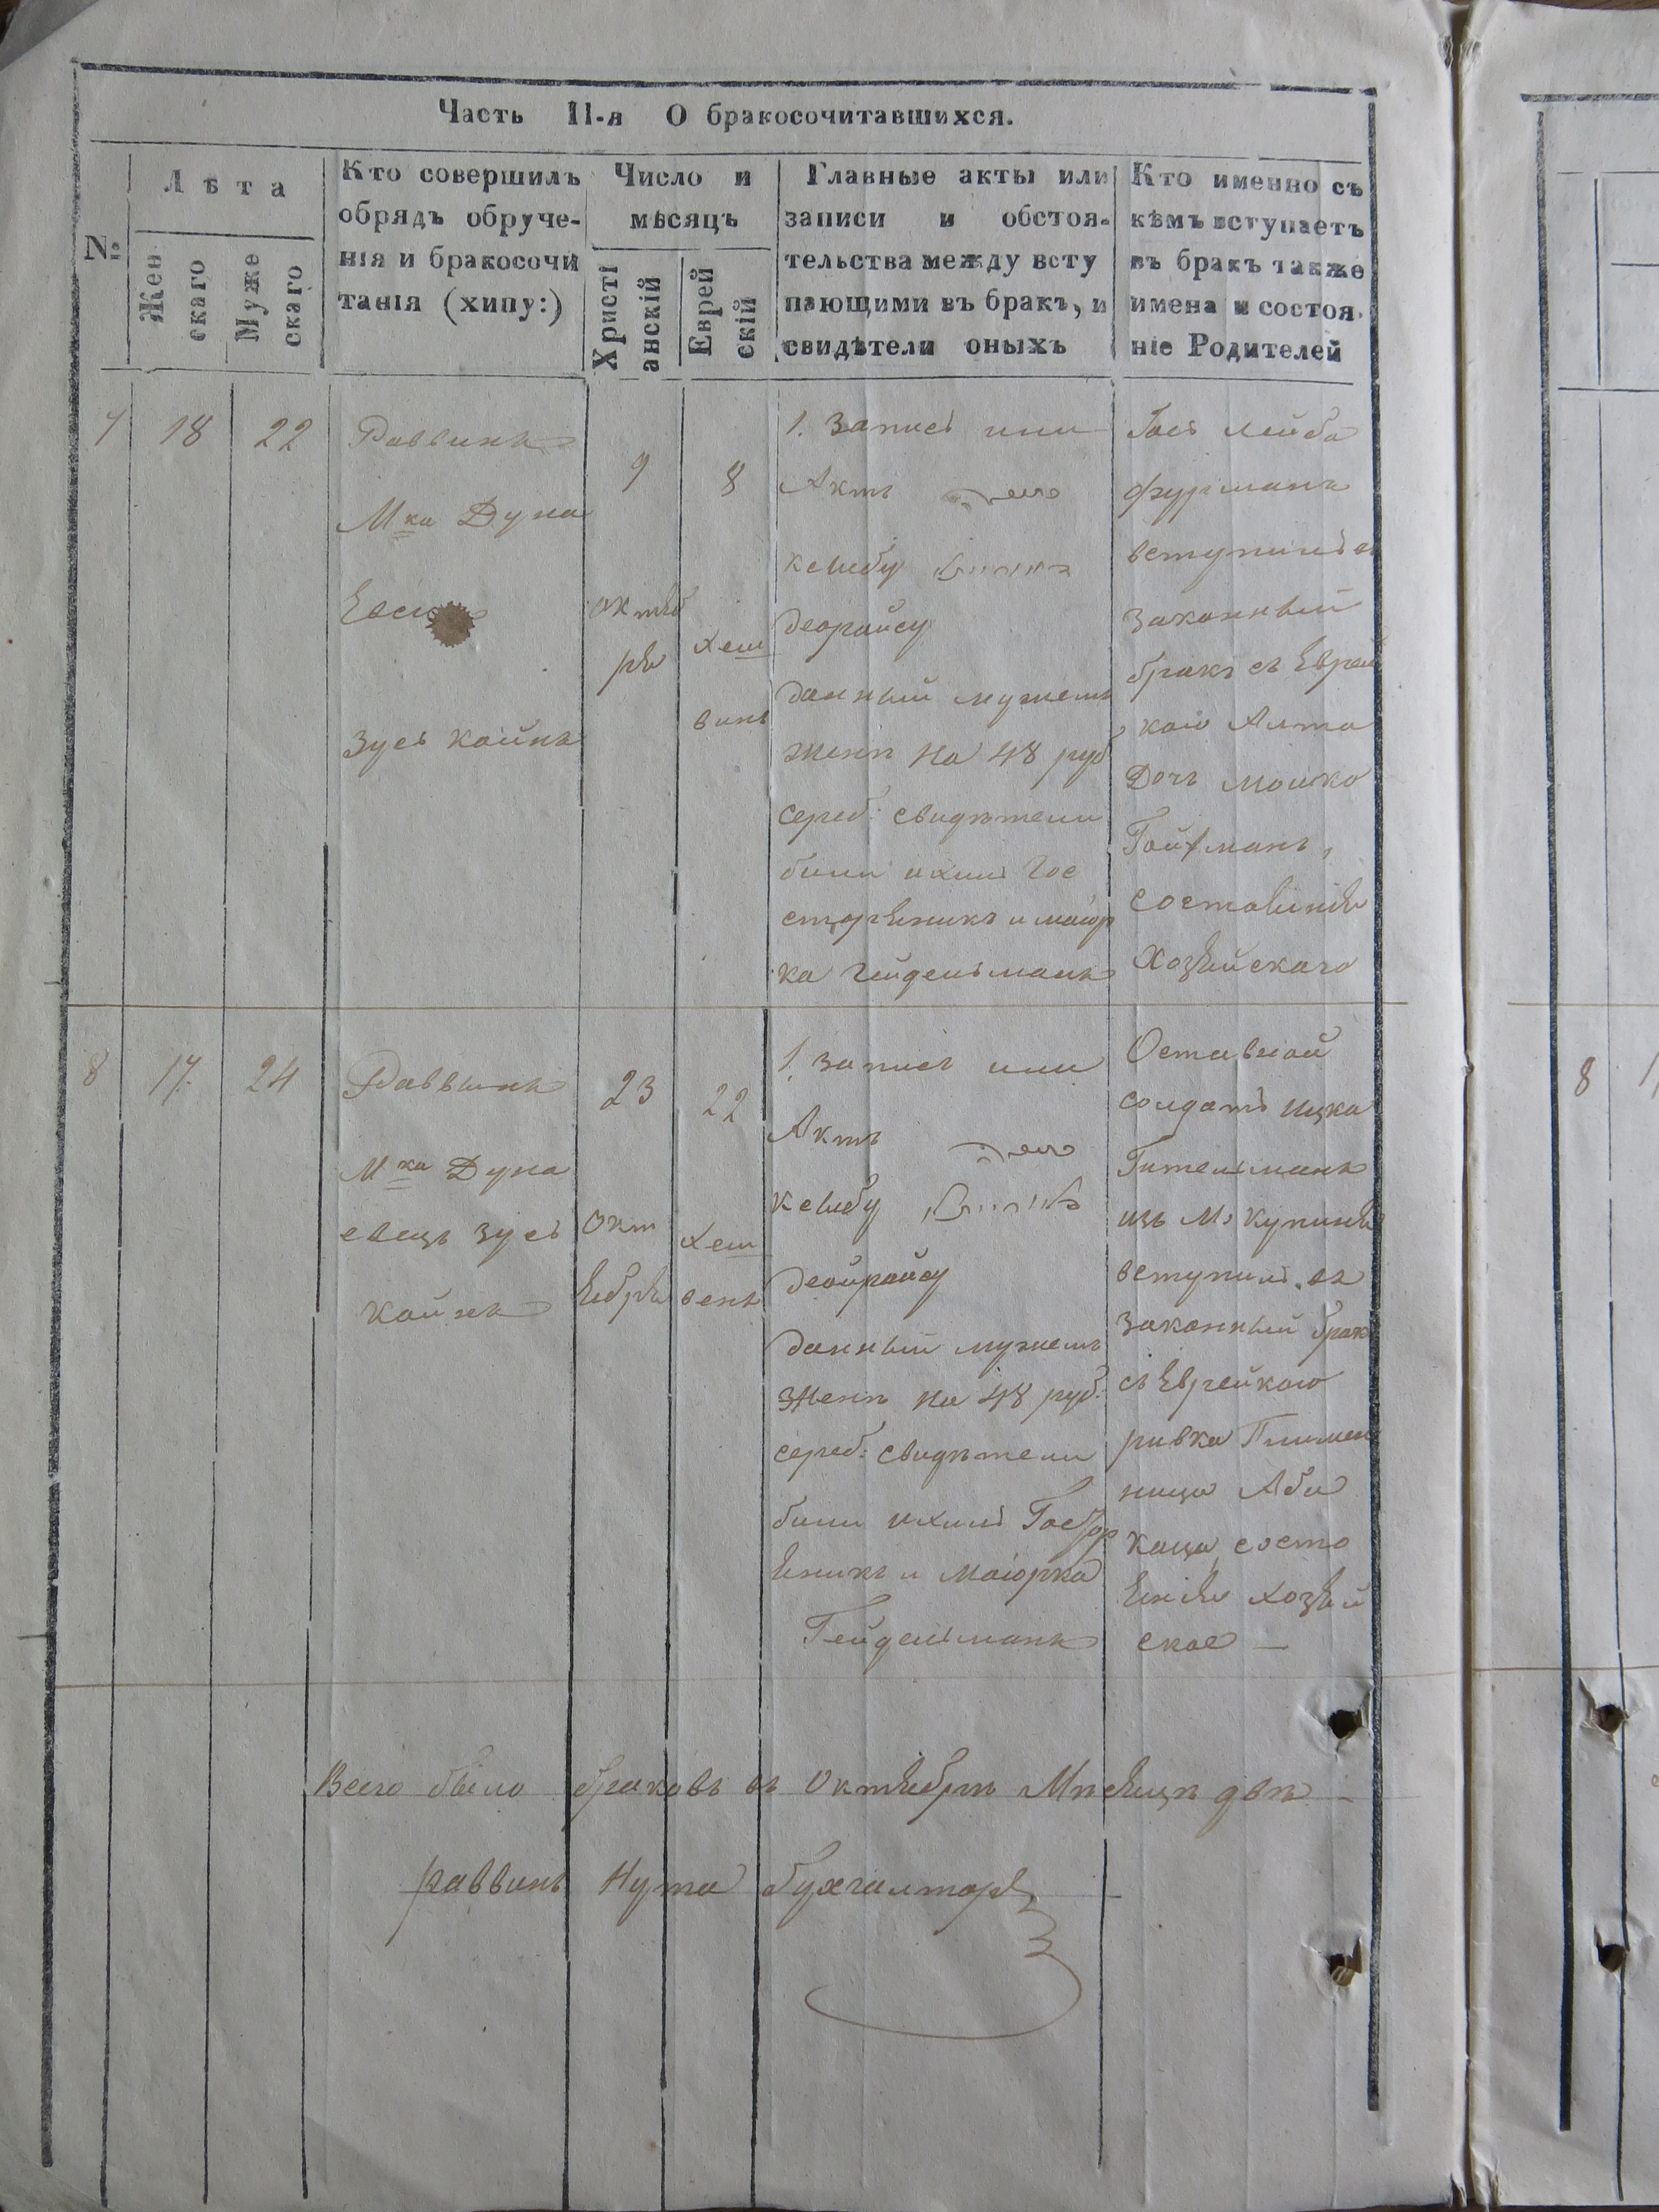 Часть II-я О бракосочитавшихся.
№
Лѣта
Жен
скаго
Муже
скаго
Кто совершилъ
обрядъ обруче-
нія и бракосочи
танія (хипу:)
Число и
мѣсяцъ
Христі
анскій
Еврей
скій
Главные акты или
записи и обстоя-
тельства между всту
пающими въ бракъ, и
свидѣтели оныхъ
Кто именно съ
кѣмъ вступаетъ
въ бракъ также
имена и состоя-
ніе Родителей
7
18
22
Раввинъ
Мка Дуна
Зусь Койнъ
9
октяб
ря
8
хеш
винь
1. Запись или
Актъ
ксыбу
деорайсу
данный мужемъ
женѣ на 48 руб
сереб: свидѣтели
били ихилъ Гос
и маіор
ка Гейдельманъ
Лейба
Фурманъ
вступилъ въ
законный
бракъ съ Еврей
кою Алта
Дочъ Мошко
Гойфманъ,
состоянія
Хозяйскаго
8
17.
24
Раввинъ
Мка Дуна
евецъ Зусь
Койнъ
23
Окт
ября
22
хеш
вень
1. запись или
Актъ
ксыбу
деойрайсу
данный мужемъ
женѣ на 48 руб:
сереб: свидѣтели
били ихилъ
и Маіорка
Гейдельманъ
Оставной
солдатъ Ицка
Гительманъ
изъ М. Купиня
вступилъ въ
законный брак
съ Еврейкою
ривка Племен
ница Аба
Каца, состо
янія хозяй
ское —
8
Всего было браковъ въ Октябрѣ Мѣсяцѣ двѣ —
раввинъ Нута Бухгалторъ